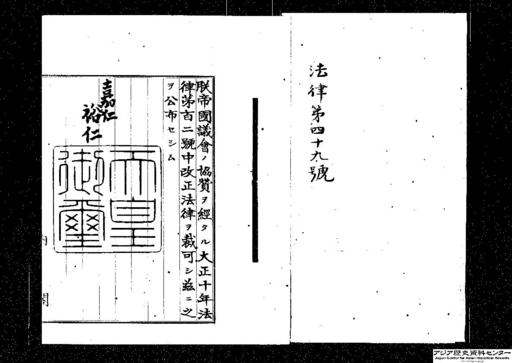 法律第四十九號
朕帝國議會ノ協賛ヲ經タル大正十年法
律第百二號中改正法律ヲ裁可シ茲ニ之
ヲ公布セシム
嘉仁
裕仁
天皇
御璽
内閣
アジア歴史資料センター
Japan Center for Asian Historical Records